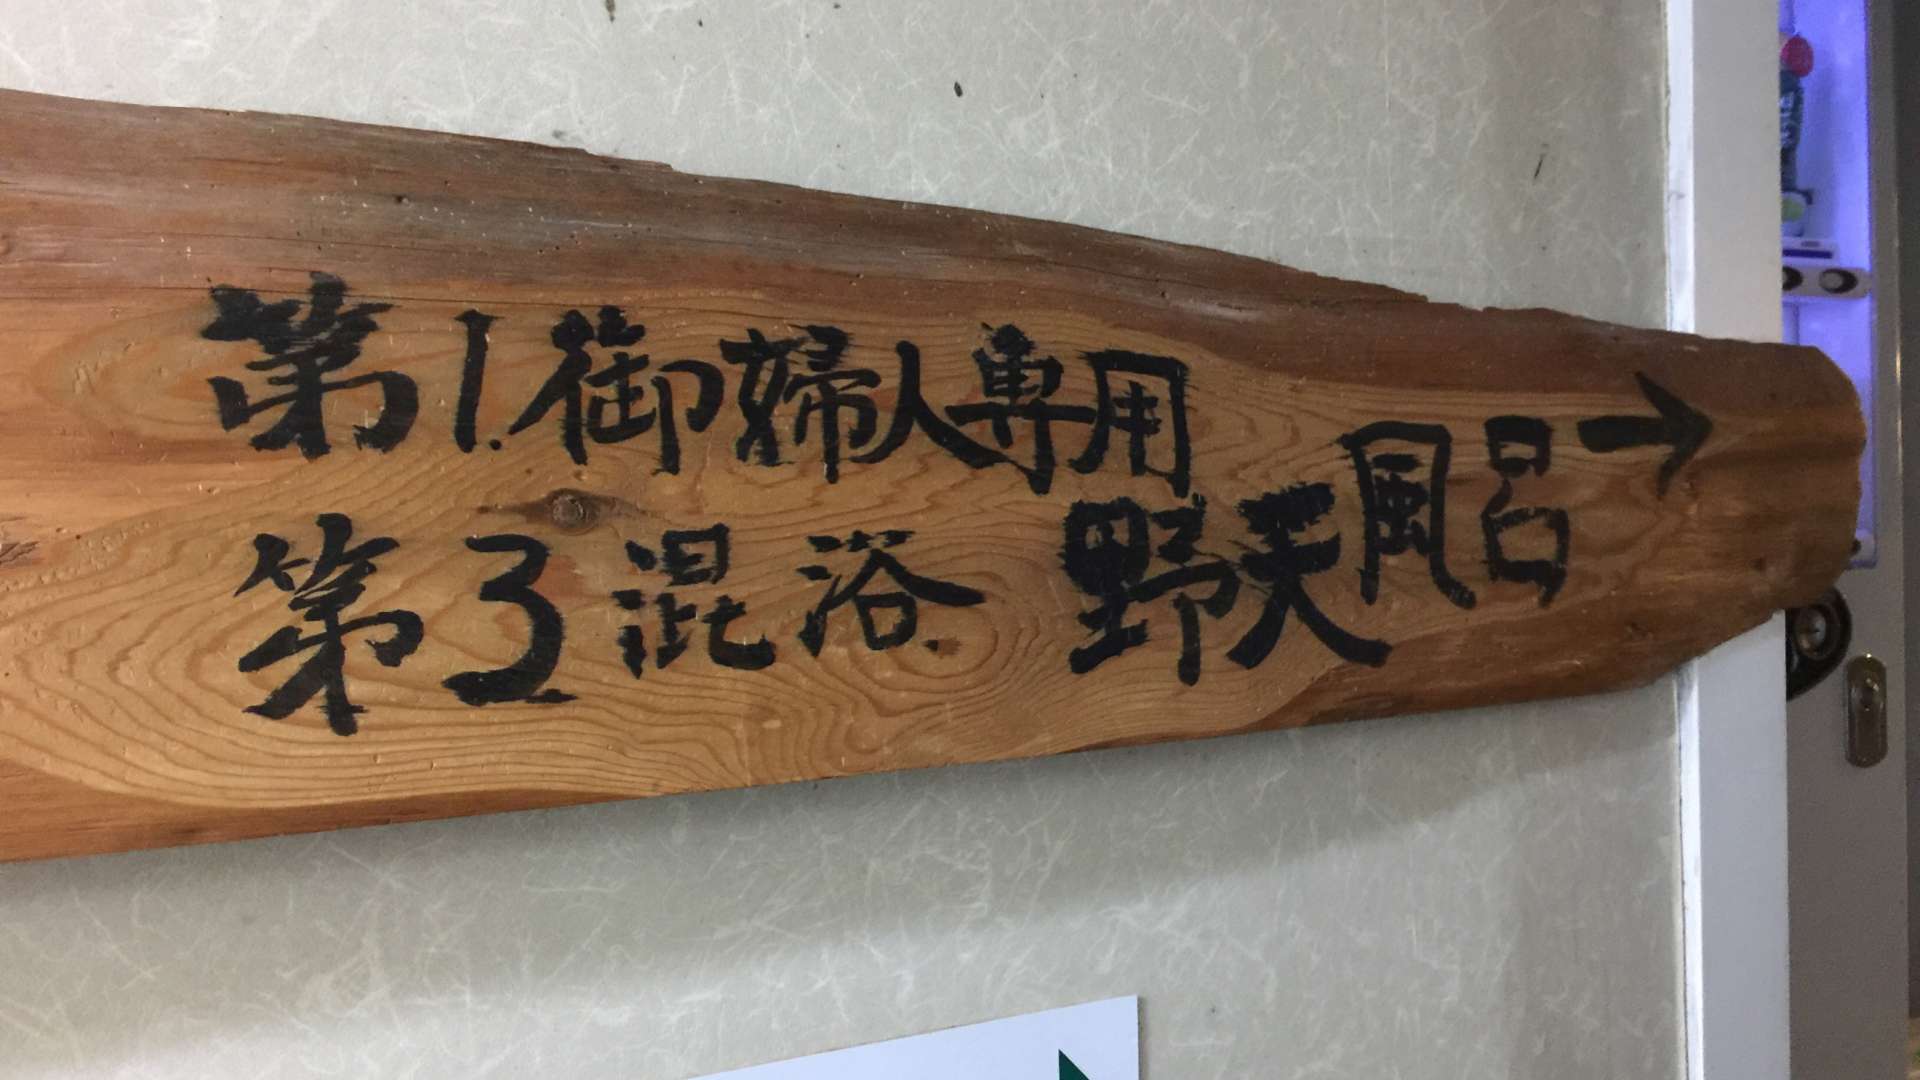 第1.御婦人専用
第3混浴. 野天風呂→